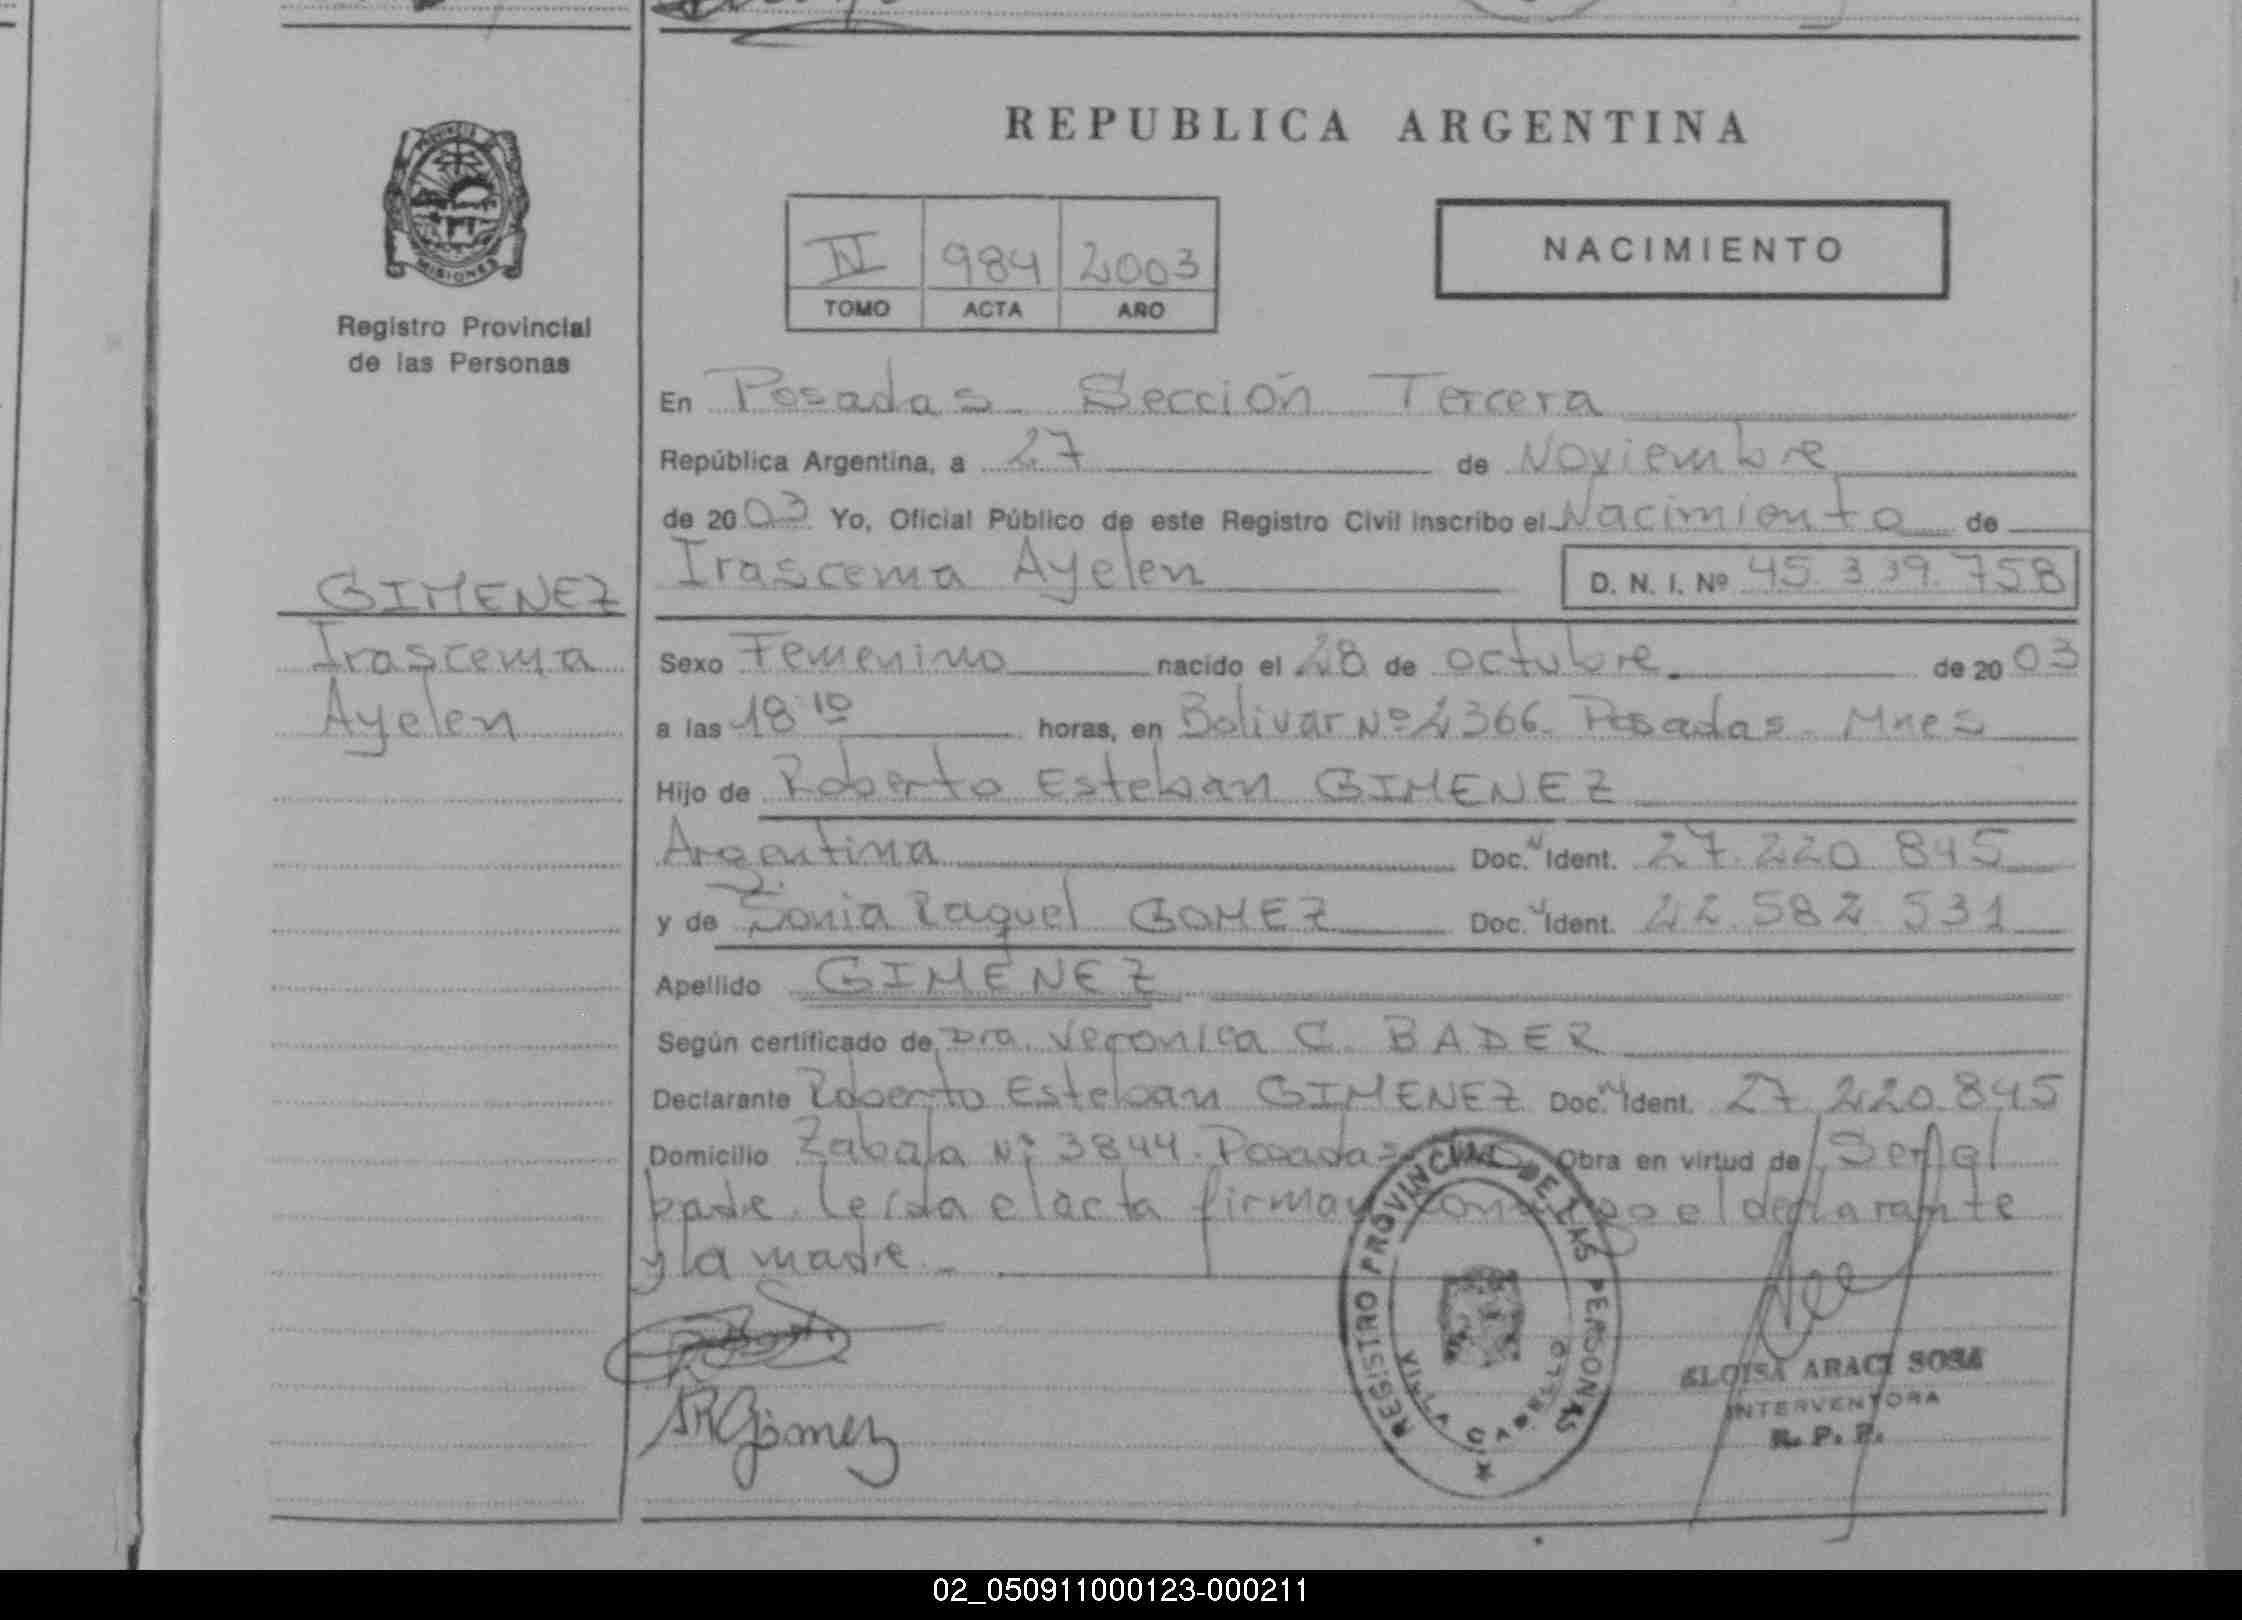 REPUBLICA ARGENTINA
PROVINCIA DE
MISIONES
Registro Provincial
de las Personas
IV 984 2003
TOMO ACTA AÑO
NACIMIENTO
En Posadas Sección Tercera
República Argentina, a 27 de Noviembre
de 2003 Yo, Oficial Público de este Registro Civil inscribo el Nacimiento de
Irascema Ayelen D. N. I. Nº 45.339.758
GIMENEZ
Irascema
Ayelen
Sexo Femenino nacido el 28 de octubre de 2003
a las 18 10 horas, en Bolivar Nº 2366. Posadas. Mnes
Hijo de Roberto Esteban GIMENEZ
Argentina Doc. Ident. 27.220.845
y de Sonia Raquel GOMEZ Doc. Ident. 22.582.531
Apellido GIMENEZ
Según certificado de Dra. Veronica C. BADER
Declarante Roberto Esteban GIMENEZ Doc. Ident. 27.220.845
Domicilio Zabala Nº 3844. Posadas Obra en virtud de Ser el
padre. Leida el acta firman conmigo el declarante
y la madre.
SRGómez
REGISTRO PROVINCIAL DE LAS PERSONAS
VILLA CABELLO
ELOISA ARACI SOSA
INTERVENTORA
R. P. P.
02_050911000123-000211